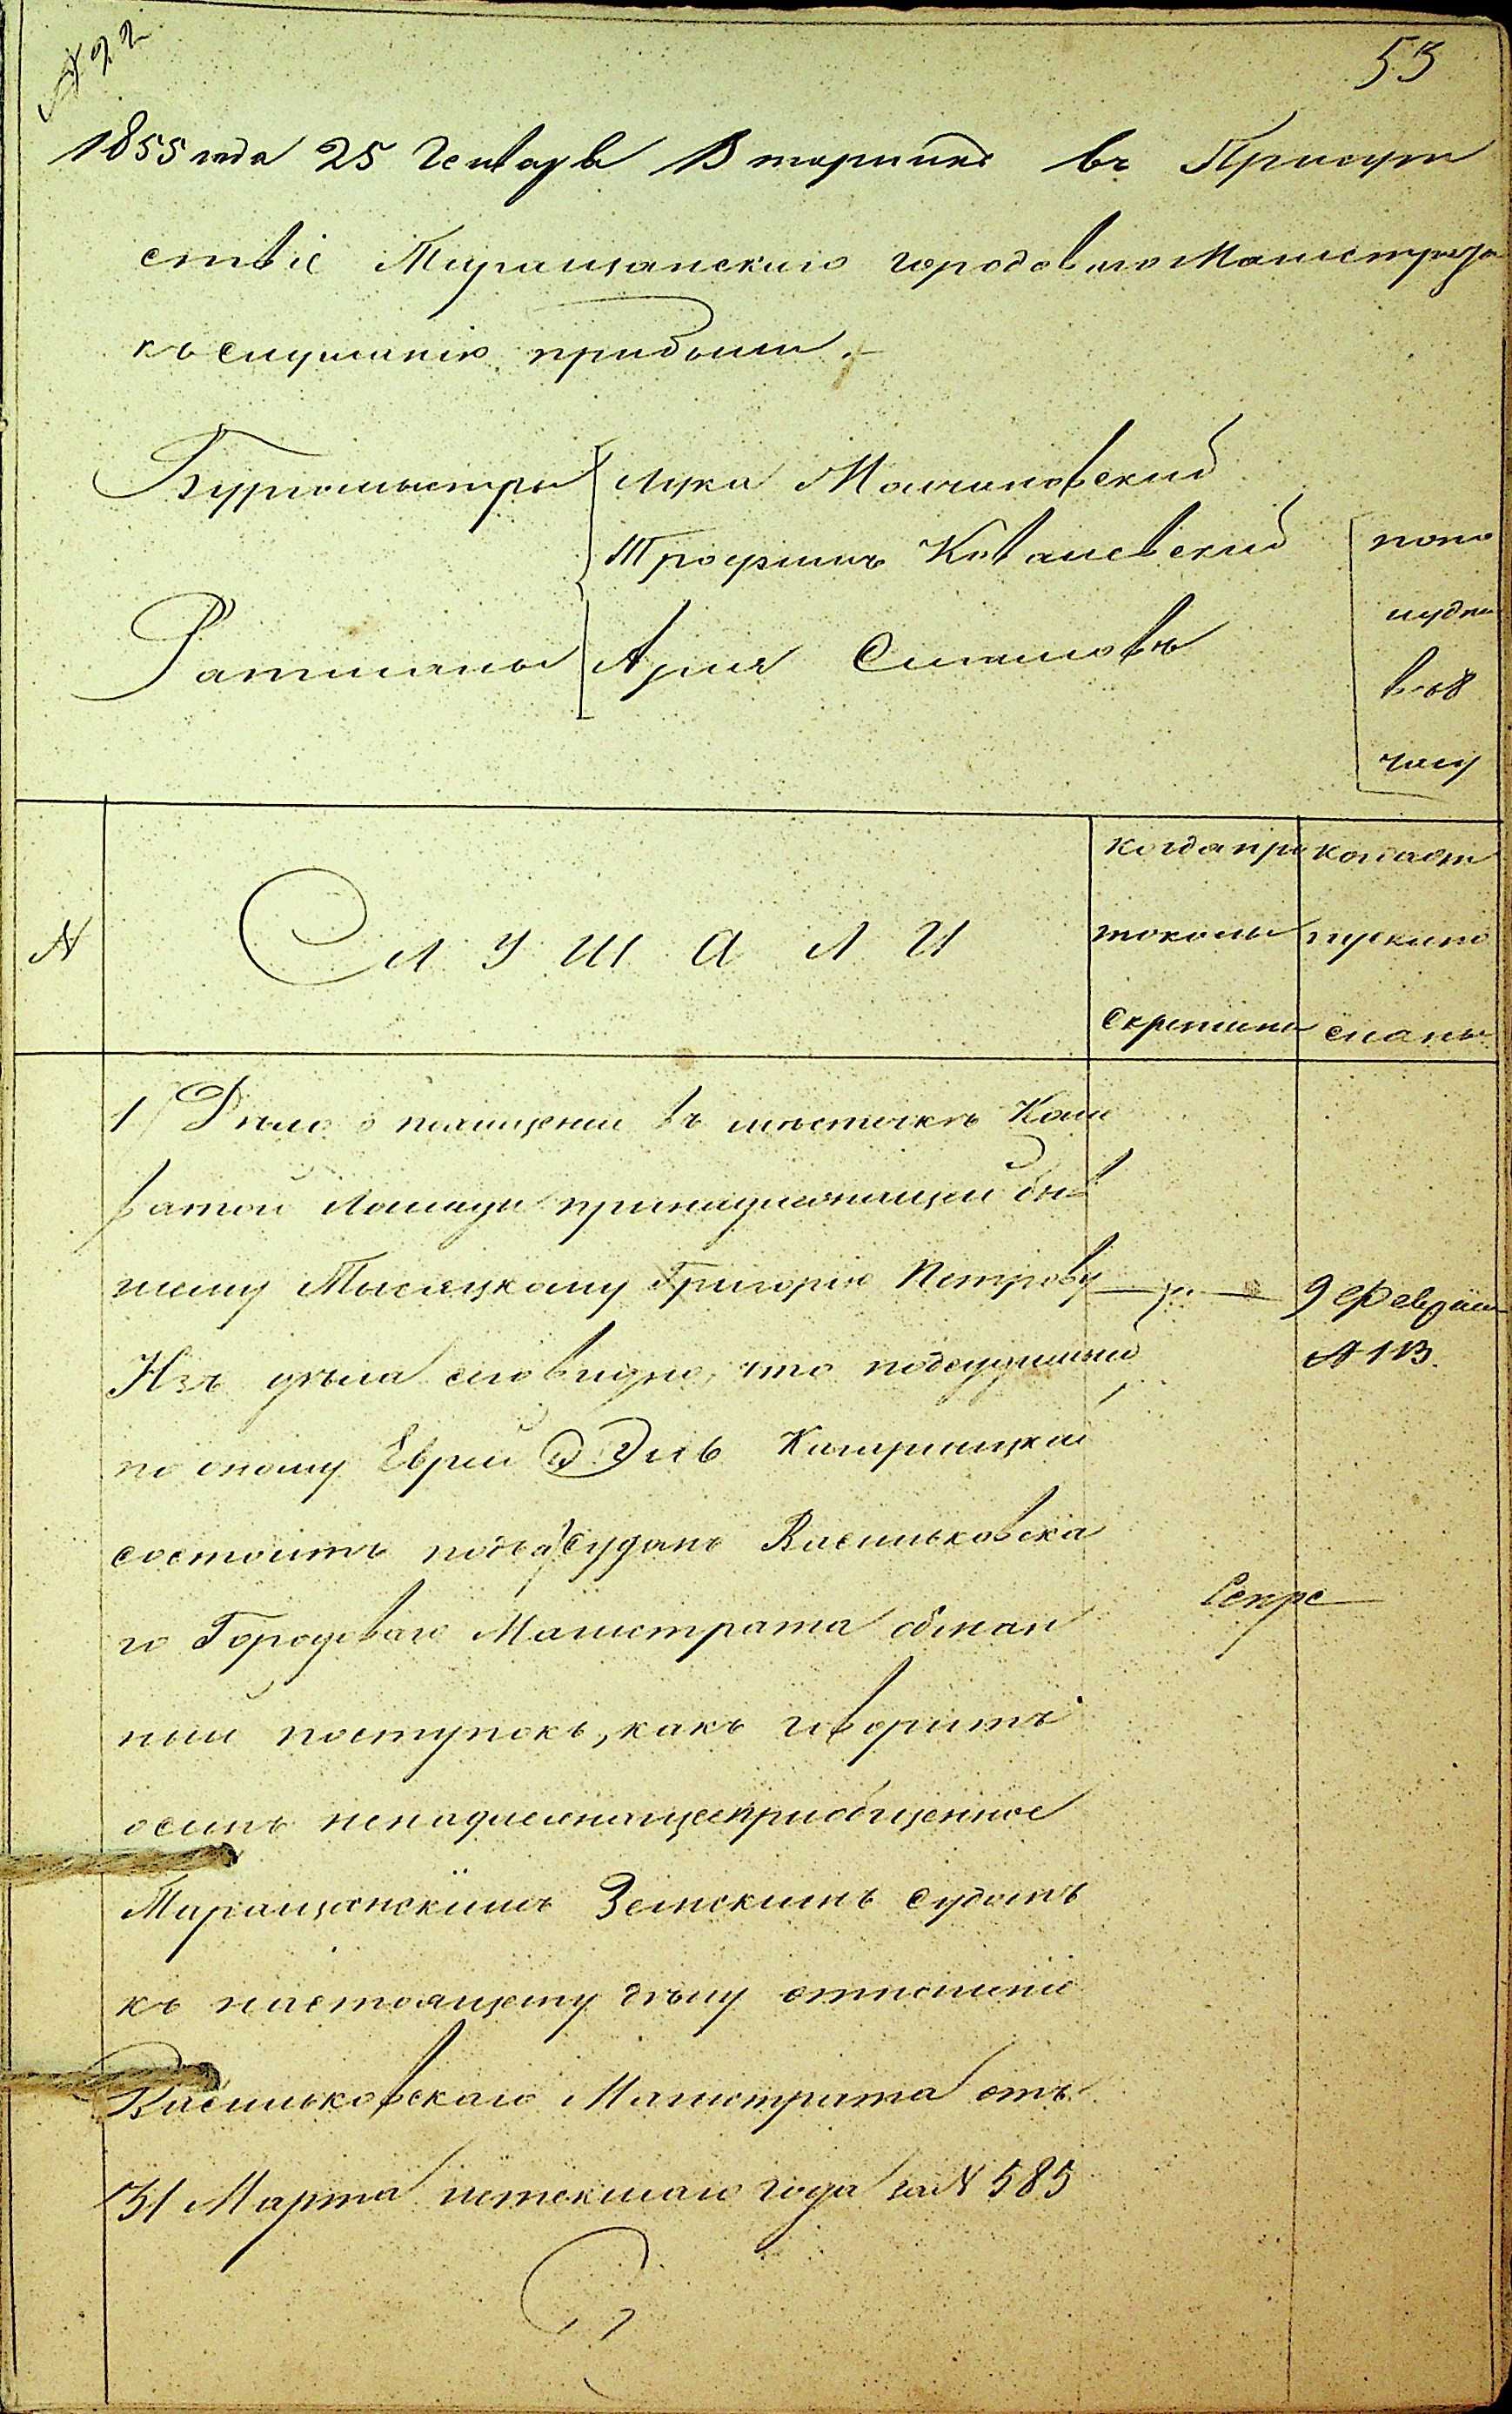 № 22
53
1855 года 25 Генваря Вторникъ въ Присут
ствіе Таращанскаго городоваго Магистрата
къ слушанію прибыли.
Бургомистры Лука Молчановскій
Трофимъ Ковалевскій
Ратманы Арія Смиловъ
попо
лудни
въ 8
часу
№
Слушали
когда про
токолы
скреплены
когда от
пуски по
сланы
1) Дело о похищении въ местечкѣ Кош
ватой Лошади принадлежащей быв
шему Тысяцкому Григорію Петрову
Изъ дѣла сего видно, что подсудимый
по оному Еврей Эль Кагарлицкій
состоитъ подъ судомъ Васильковска
го Городоваго Магистрата
ный поступокъ, какъ говоритъ
о семъ ненадлежаще приобщенное
Таращанскимъ Земскимъ Судомъ
къ настоящему дѣлу отношеніе
Васильковскаго Магистрата отъ
31 Марта истекшаго года за № 585
9 Февраля
№ 113.
Секре